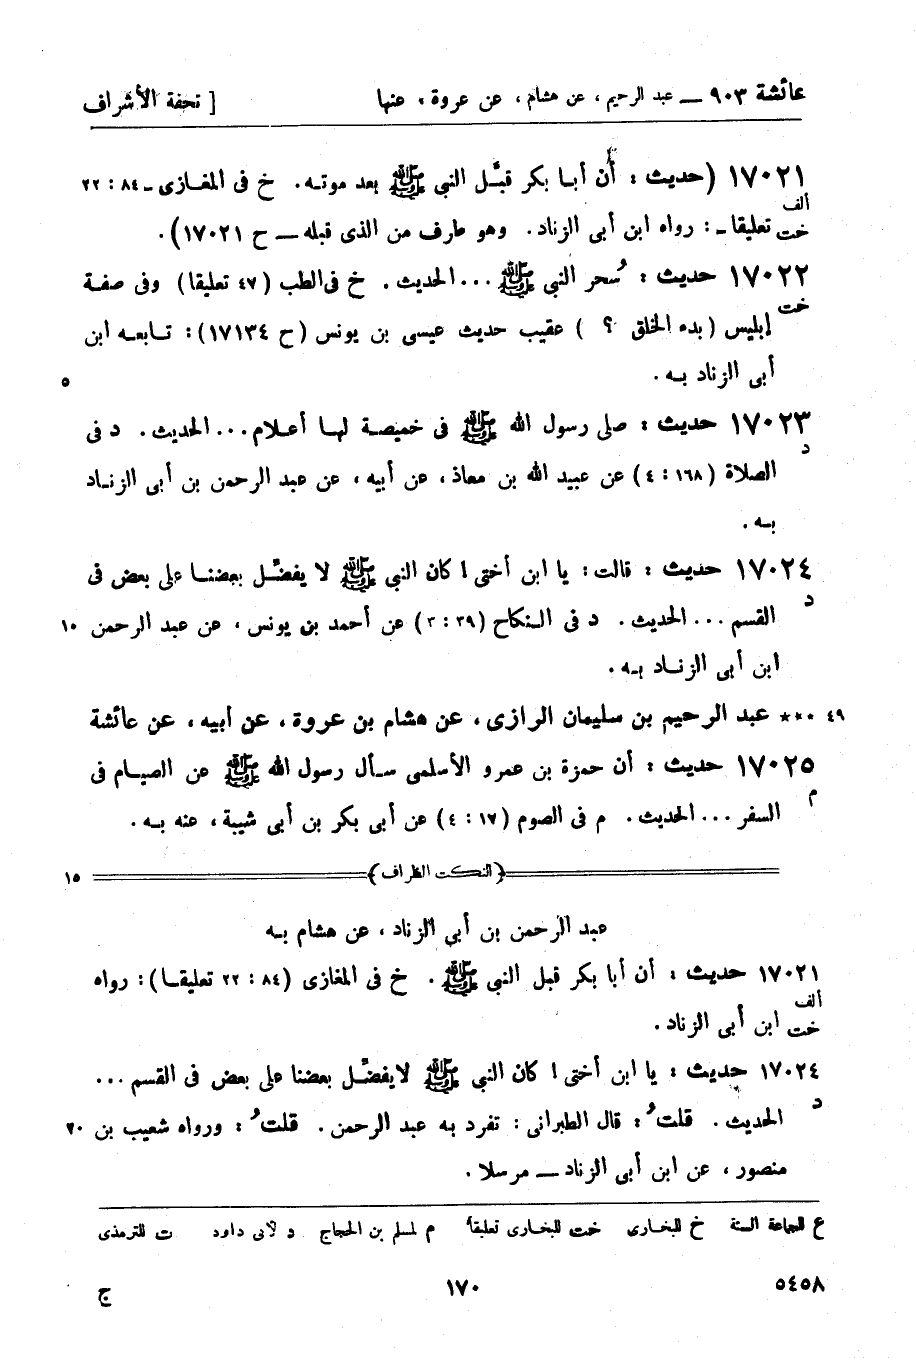 عائشة ٩٠٣ — عبد الرحيم ، عن هشام ، عن عروة ، عنها [ تحفة الأشراف
١٧٠٢١ (حديث : أن أبا بكر قبّل النبي ﷺ بعد موته. خ في المغازى ـ ٨٤ : ٢٢
ألف
خت تعليقا ـ : رواه ابن أبى الزناد. وهو طارف من الذى قبله — ح ١٧٠٢١).
١٧٠٢٢ حديث : سُحر النبي ﷺ ... الحديث. خ فى الطب (٤٧ تعليقا) وفى صفة
خت إبليس (بدء الخلق ؟ ) عقيب حديث عيسى بن يونس (ح ١٧١٣٤): تابعه ابن
أبى الزناد به. ٥
١٧٠٢٣ حديث : صلى رسول الله ﷺ فى خميصة لها أعلام... الحديث. د فى
د الصلاة (١٦٨ : ٤) عن عبيد الله بن معاذ، عن أبيه، عن عبد الرحمن بن أبى الزناد
به.
١٧٠٢٤ حديث : قالت: يا ابن أختى ! كان النبي ﷺ لا يفضّل بعضنا على بعض فى
د القسم ... الحديث. د فى النكاح (٣٩ : ٣) عن أحمد بن يونس، عن عبد الرحمن ١٠
ابن أبى الزناد به.
٤٩ *** عبد الرحيم بن سليمان الرازى، عن هشام بن عروة، عن أبيه، عن عائشة
١٧٠٢٥ حديث : أن حمزة بن عمرو الأسلمى سأل رسول الله ﷺ عن الصيام فى
م السفر ... الحديث. م فى الصوم (١٧ : ٤) عن أبى بكر بن أبى شيبة، عنه به.
(النكت الظراف) ١٥
عبد الرحمن بن أبي الزناد، عن هشام به
١٧٠٢١ حديث : أن أبا بكر قبل النبي ﷺ. خ فى المغازى (٨٤ : ٢٢ تعليقا): رواه
ألف
خت ابن أبى الزناد.
١٧٠٢٤ حديث : يا ابن أختى ! كان النبي ﷺ لا يفضّل بعضنا على بعض فى القسم ...
د الحديث. قلتُ: قال الطبرانى: تفرد به عبد الرحمن. قلتُ: ورواه شعيب بن ٢٠
منصور، عن ابن أبى الزناد — مرسلا.
ع للجماعة الستة خ للبخارى خت للبخارى تعليقاً م لمسلم بن الحجاج د لابى داود ت للترمذى
٥٤٥٨ ١٧٠ ج